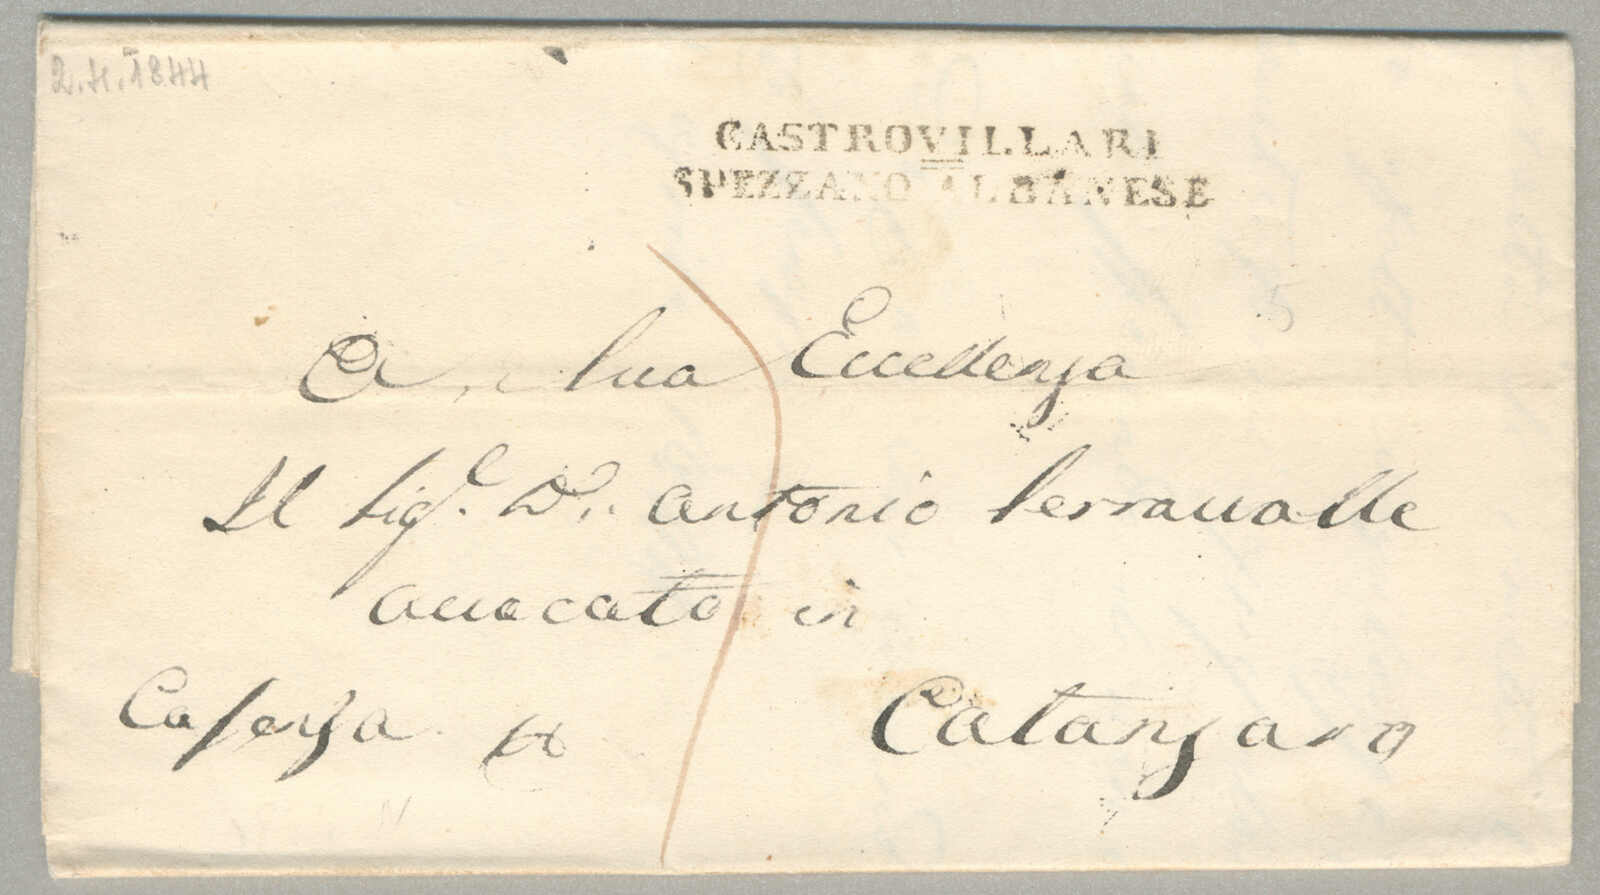 2.4.1844
CASTROVILLARI
SPEZZANO ALBANESE
5
A Sua Eccellenza
Il Sig.r D.n Antonio Serravalle
Avvocato in
Cosenza Catanzaro